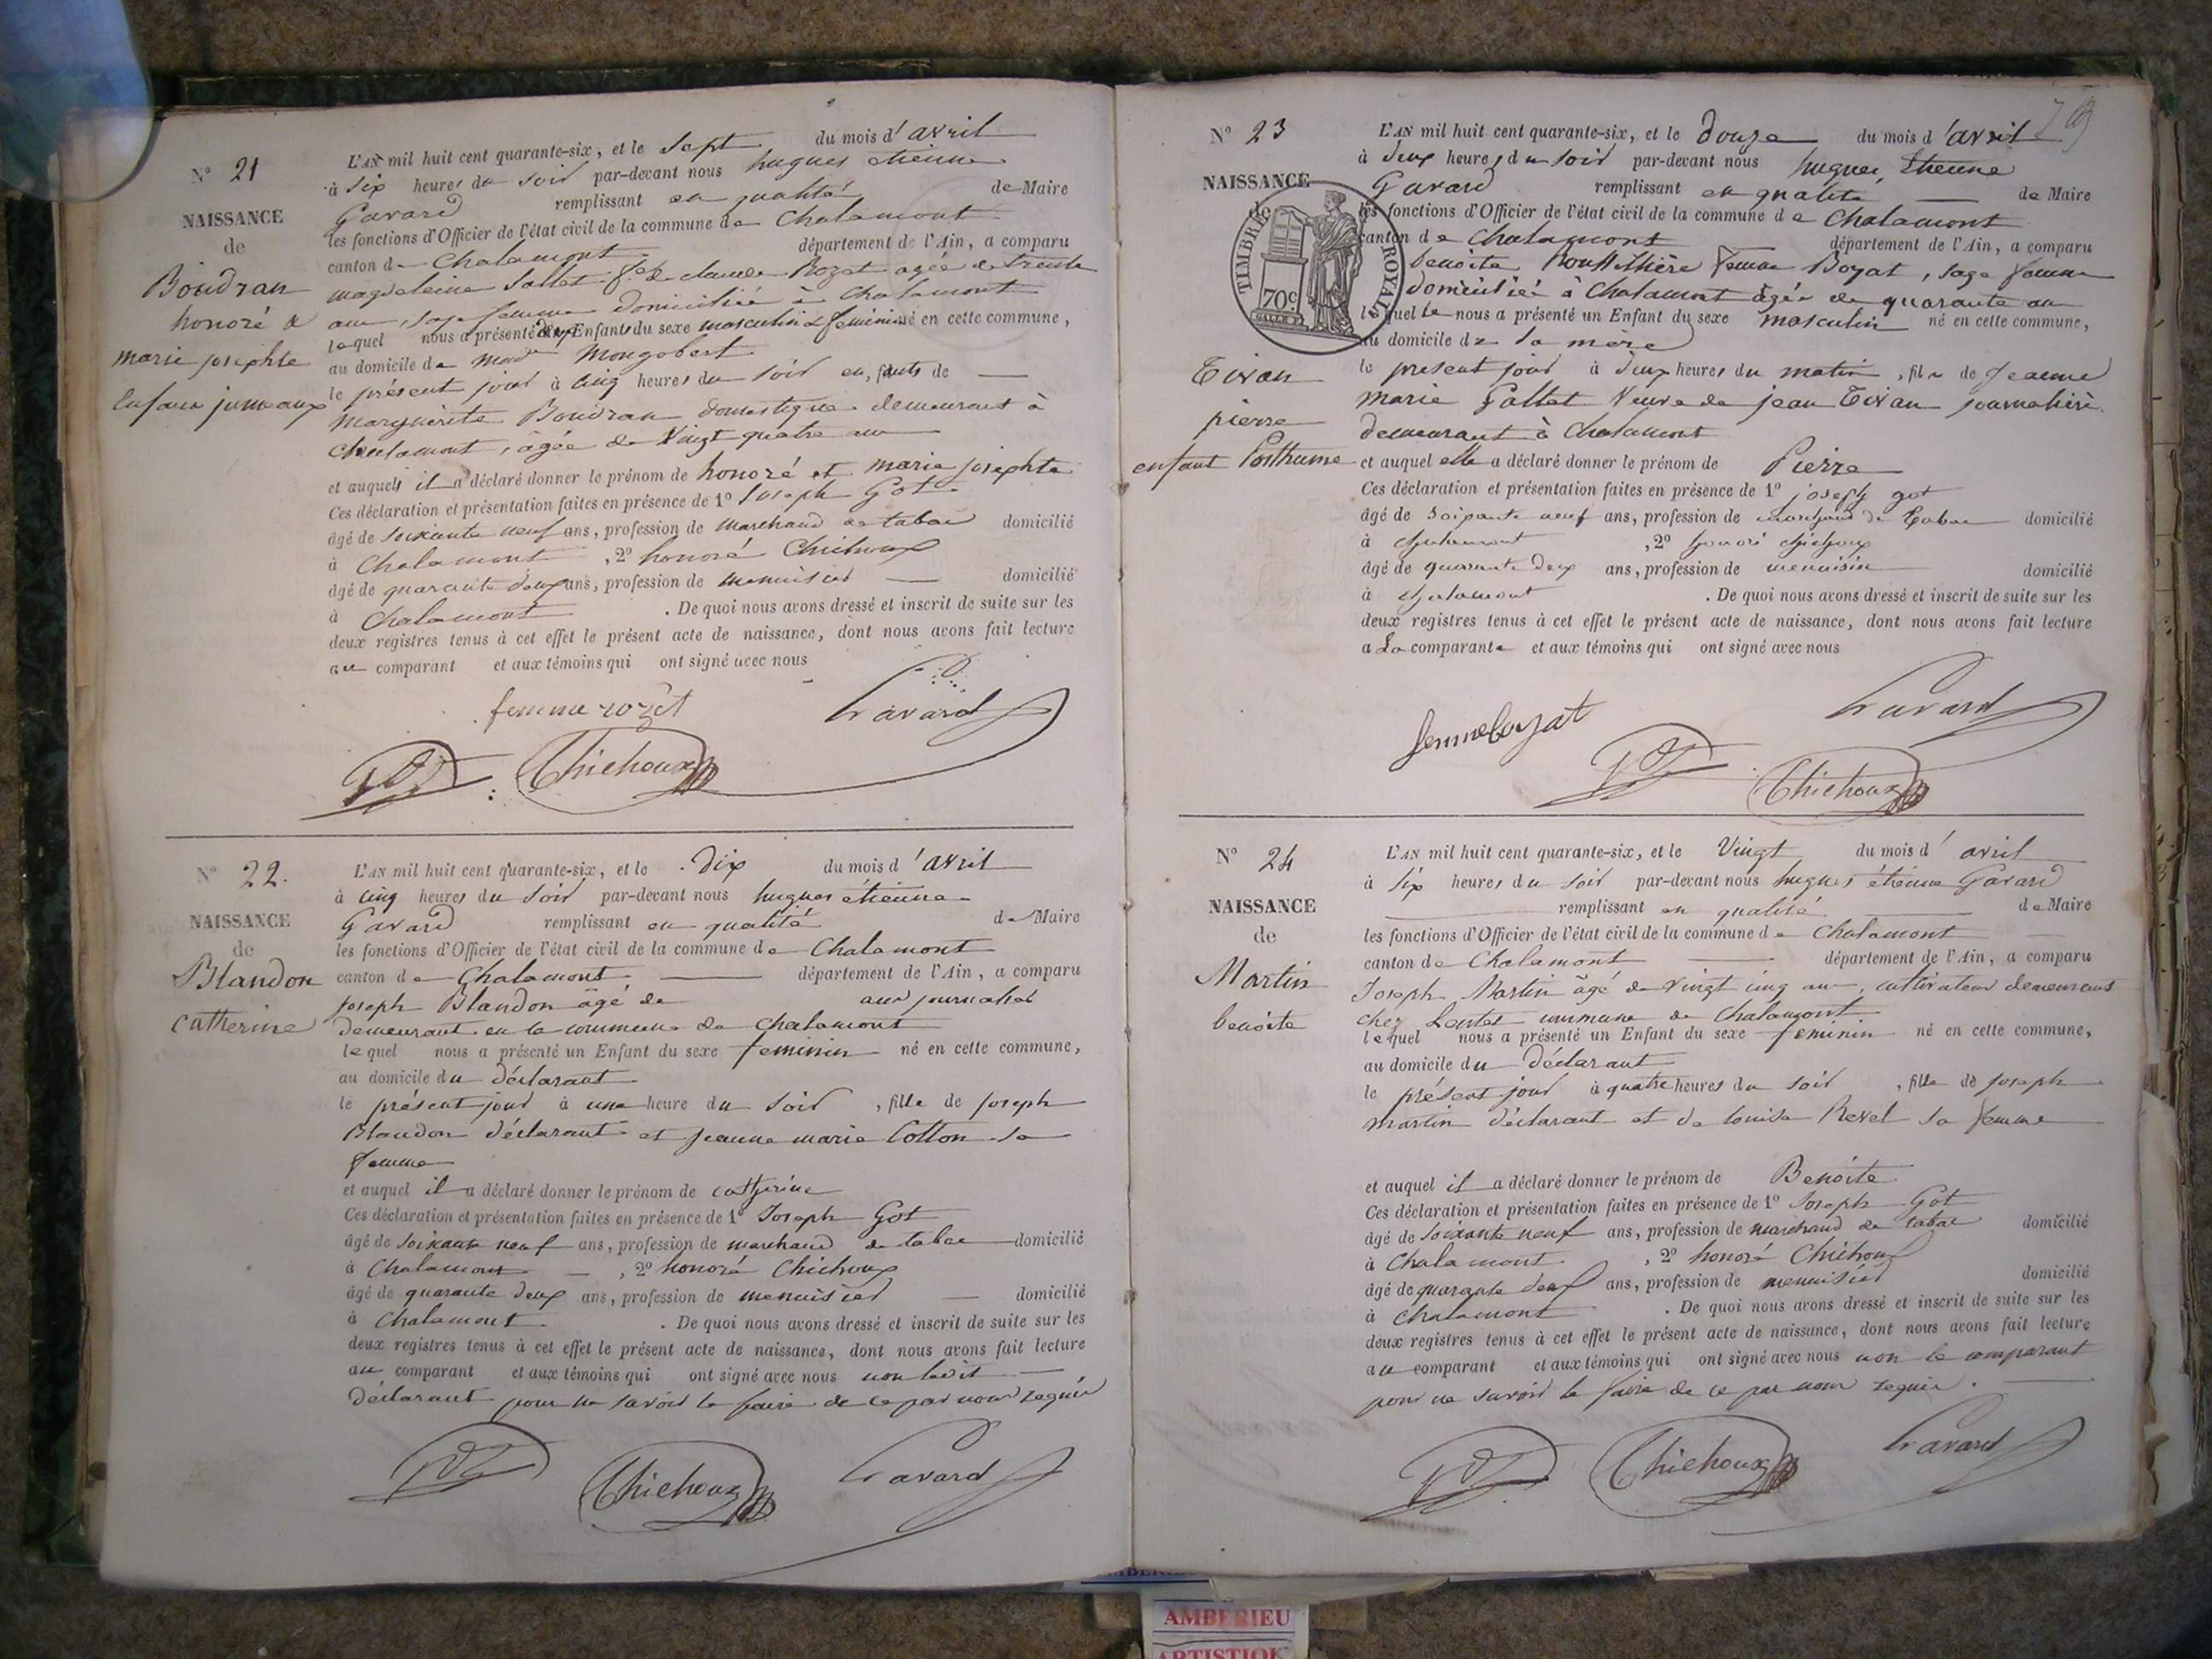 N° 21
NAISSANCE
de
Boudran
honoré &
marie josephte
Enfans jumeaux
L'AN mil huit cent quarante-six, et le Sept du mois d'avril
à six heures du soir par-devant nous hugues étienne
Gavard remplissant en qualité de Maire
les fonctions d'Officier de l'état civil de la commune de Chalamont
canton de Chalamont département de l'Ain, a comparu
magdeleine Sallet fe de claude Rozet agée de trente
ans, sage femme domiciliée à Chalamont
lequel nous a présenté deux Enfants du sexe masculin & féminin né en cette commune,
au domicile de made Mongobert
le présent jour à cinq heures du soir enfants de
Marguerite Boudran domestique demeurant à
Chalamont, âgée de Vingt quatre ans
et auquels il a déclaré donner le prénom de honoré et marie josephte
Ces déclaration et présentation faites en présence de 1° Joseph Got
âgé de soixante neuf ans, profession de marchand de tabac domicilié
à Chalamont, 2° honoré Chichoux
âgé de quarante deux ans, profession de menuisier domicilié
à Chalamont. De quoi nous avons dressé et inscrit de suite sur les
deux registres tenus à cet effet le présent acte de naissance, dont nous avons fait lecture
au comparant et aux témoins qui ont signé avec nous
femme rozet Gavard
Got Chichoux
N° 22.
NAISSANCE
de
Blandon
Catherine
L'AN mil huit cent quarante-six, et le Dix du mois d'avril
à cinq heures du soir par-devant nous hugues étienne
Gavard remplissant en qualité de Maire
les fonctions d'Officier de l'état civil de la commune de Chalamont
canton de Chalamont département de l'Ain, a comparu
Joseph Blandon âgé de ans journalier
demeurant en la commune de Chalamont
lequel nous a présenté un Enfant du sexe feminin né en cette commune,
au domicile du déclarant
le présent jour à une heure du soir, fille de Joseph
Blandon déclarant et jeanne marie Cotton sa
femme
et auquel il a déclaré donner le prénom de catherine
Ces déclaration et présentation faites en présence de 1° Joseph Got
âgé de soixante neuf ans, profession de marchand de tabac domicilié
à Chalamont, 2° honoré Chichoux
âgé de quarante deux ans, profession de menuisier domicilié
à Chalamont. De quoi nous avons dressé et inscrit de suite sur les
deux registres tenus à cet effet le présent acte de naissance, dont nous avons fait lecture
au comparant et aux témoins qui ont signé avec nous non ledit
déclarant pour ne savoir le faire de ce par nous requis
Got Chichoux Gavard
N° 23
NAISSANCE
de
TIMBRE ROYAL
70c
Tivan
pierre
enfant Posthume
L'AN mil huit cent quarante-six, et le douze du mois d'avril
à deux heures du soir par-devant nous hugues, Etienne
Gavard remplissant en qualité de Maire
les fonctions d'Officier de l'état civil de la commune de Chalamont
canton de Chalamont département de l'Ain, a comparu
benoite femme Boyat, sage femme
domiciliée à Chalamont âgée de quarante ans
lequelle nous a présenté un Enfant du sexe masculin né en cette commune,
au domicile de la mère
le présent jour à deux heures du matin, fils de jeanne
marie Vallet Veuve de jean Tivan journalière
demeurant à Chalamont
et auquel elle a déclaré donner le prénom de Pierre
Ces déclaration et présentation faites en présence de 1° joseph got
âgé de soixante neuf ans, profession de marchand de Tabac domicilié
à Chalamont, 2° honoré chichoux
âgé de quarante deux ans, profession de menuisier domicilié
à Chalamont. De quoi nous avons dressé et inscrit de suite sur les
deux registres tenus à cet effet le présent acte de naissance, dont nous avons fait lecture
a La comparante et aux témoins qui ont signé avec nous
femme boyat Gavard
Got Chichoux
N° 24
NAISSANCE
de
Martin
benoite
L'AN mil huit cent quarante-six, et le Vingt du mois d'avril
à six heures du soir par-devant nous hugues étienne Gavard
remplissant en qualité de Maire
les fonctions d'Officier de l'état civil de la commune de Chalamont
canton de Chalamont département de l'Ain, a comparu
Joseph Martin âgé de vingt cinq ans, cultivateur demeurant
chez commune de Chalamont
lequel nous a présenté un Enfant du sexe feminin né en cette commune,
au domicile du déclarant
le présent jour à quatre heures du soir, fille de joseph
martin déclarant et de louise Revel sa femme
et auquel il a déclaré donner le prénom de Benoite
Ces déclaration et présentation faites en présence de 1° Joseph Got
âgé de soixante neuf ans, profession de marchand de tabac domicilié
à Chalamont, 2° honoré Chichoux
âgé de quarante deux ans, profession de menuisier domicilié
à Chalamont. De quoi nous avons dressé et inscrit de suite sur les
deux registres tenus à cet effet le présent acte de naissance, dont nous avons fait lecture
au comparant et aux témoins qui ont signé avec nous non le comparant
pour ne savoir le faire de ce par nous requis.
Got Chichoux Gavard
AMBERIEU
ARTISTIQ